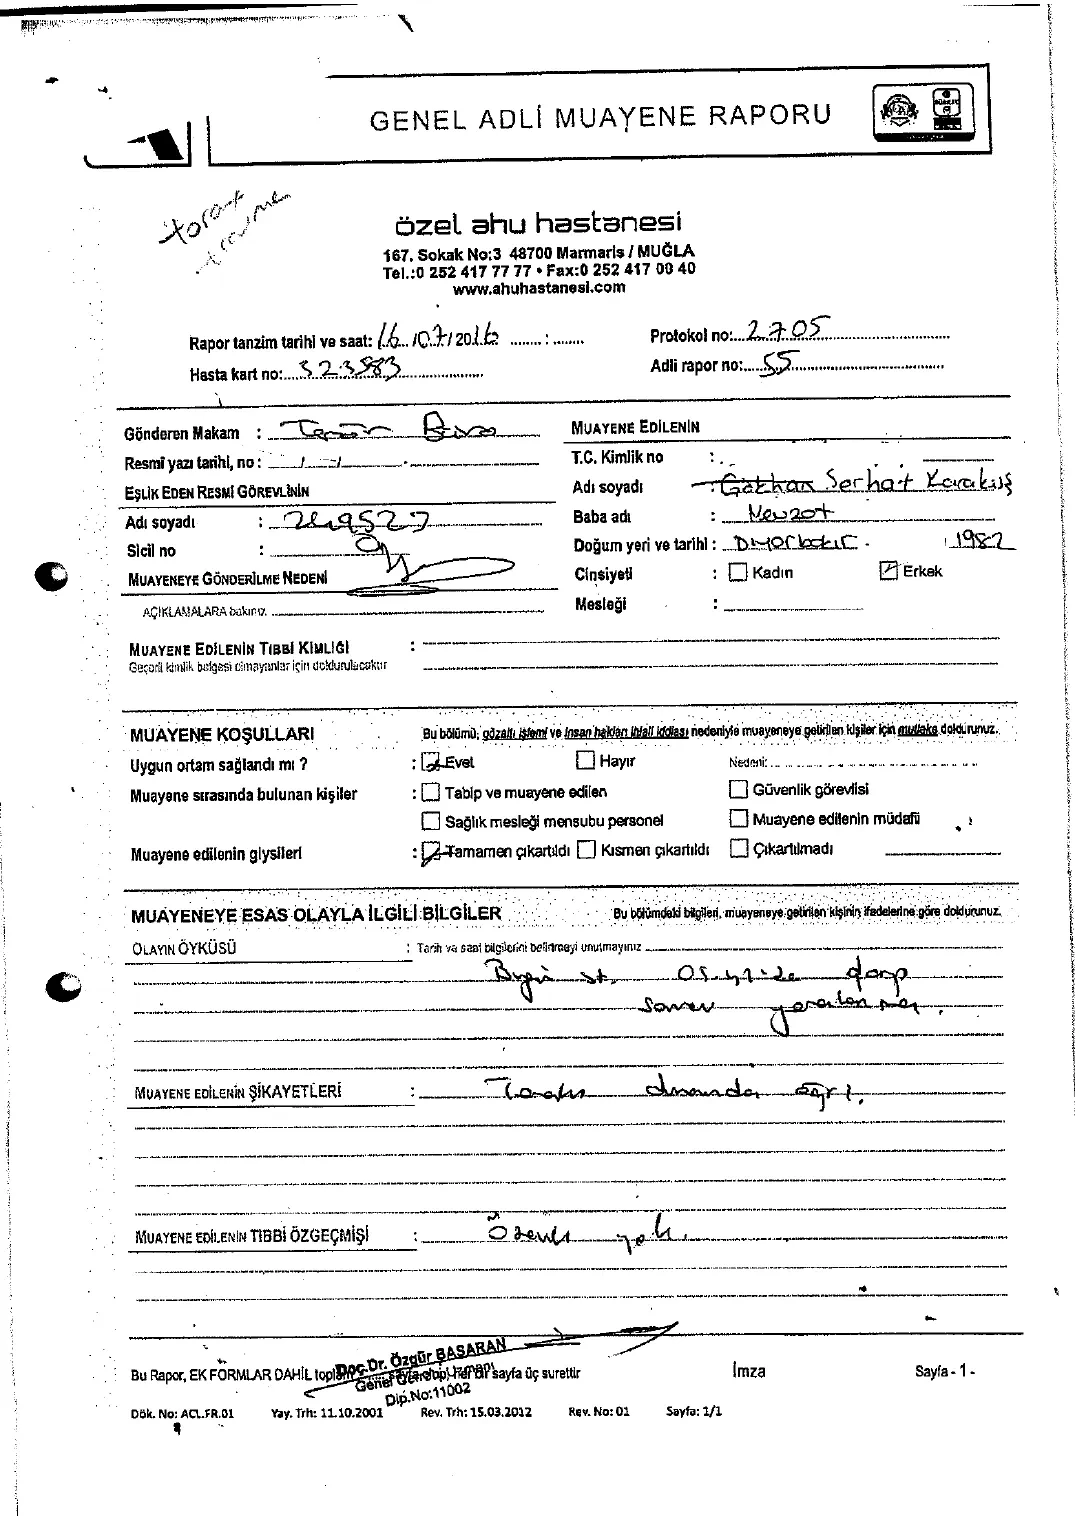 GENEL ADLİ MUAYENE RAPORU
özel ahu hastanesi
167. Sokak No:3 48700 Marmaris / MUĞLA
Tel.:0 252 417 77 77 • Fax:0 252 417 00 40
www.ahuhastanesi.com
Rapor tanzim tarihi ve saat: 16/07/2016 ........ : ........
Protokol no:...2705
Hasta kart no:....323583
Adli rapor no:.....55
Gönderen Makam :
MUAYENE EDİLENİN
Resmî yazı tarihi, no : / /
T.C. Kimlik no :
EŞLİK EDEN RESMİ GÖREVLİNİN
Adı soyadı : Gökhan Serhat Karakuş
Adı soyadı : 249527
Baba adı : Nevzat
Sicil no :
Doğum yeri ve tarihi : Diyarbakır - 1982
MUAYENEYE GÖNDERİLME NEDENİ
Cinsiyeti : Kadın Erkek
AÇIKLAMALARA bakınız.
Mesleği :
MUAYENE EDİLENİN TIBBİ KİMLİĞİ :
Geçerli kimlik belgesi olmayanlar için doldurulacaktır
MUAYENE KOŞULLARI
Bu bölümü, gözaltı işlemi ve insan hakları ihlali iddiası nedeniyle muayeneye getirilen kişiler için mutlaka doldurunuz.
Uygun ortam sağlandı mı ? : Evet Hayır Nedeni:
Muayene sırasında bulunan kişiler : Tabip ve muayene edilen Güvenlik görevlisi
Sağlık mesleği mensubu personel Muayene edilenin müdafii
Muayene edilenin giysileri : Tamamen çıkartıldı Kısmen çıkartıldı Çıkartılmadı
MUAYENEYE ESAS OLAYLA İLGİLİ BİLGİLER
Bu bölümdeki bilgileri, muayeneye getirilen kişinin ifadelerine göre doldurunuz.
OLAYIN ÖYKÜSÜ : Tarih ve saat bilgilerini belirtmeyi unutmayınız
darp
yaralanma.
MUAYENE EDİLENİN ŞİKAYETLERİ : ağrı.
MUAYENE EDİLENİN TIBBİ ÖZGEÇMİŞİ : Özellik yok.
Doç.Dr. Özgür BAŞARAN
Genel Cerrahi Uzmanı
Dip.No:11002
Bu Rapor, EK FORMLAR DAHİL toplam sayfa olup, her bir sayfa üç surettir
İmza
Sayfa - 1 -
Dök. No: ACL.FR.01 Yay. Trh: 11.10.2001 Rev. Trh: 15.03.2012 Rev. No: 01 Sayfa: 1/1